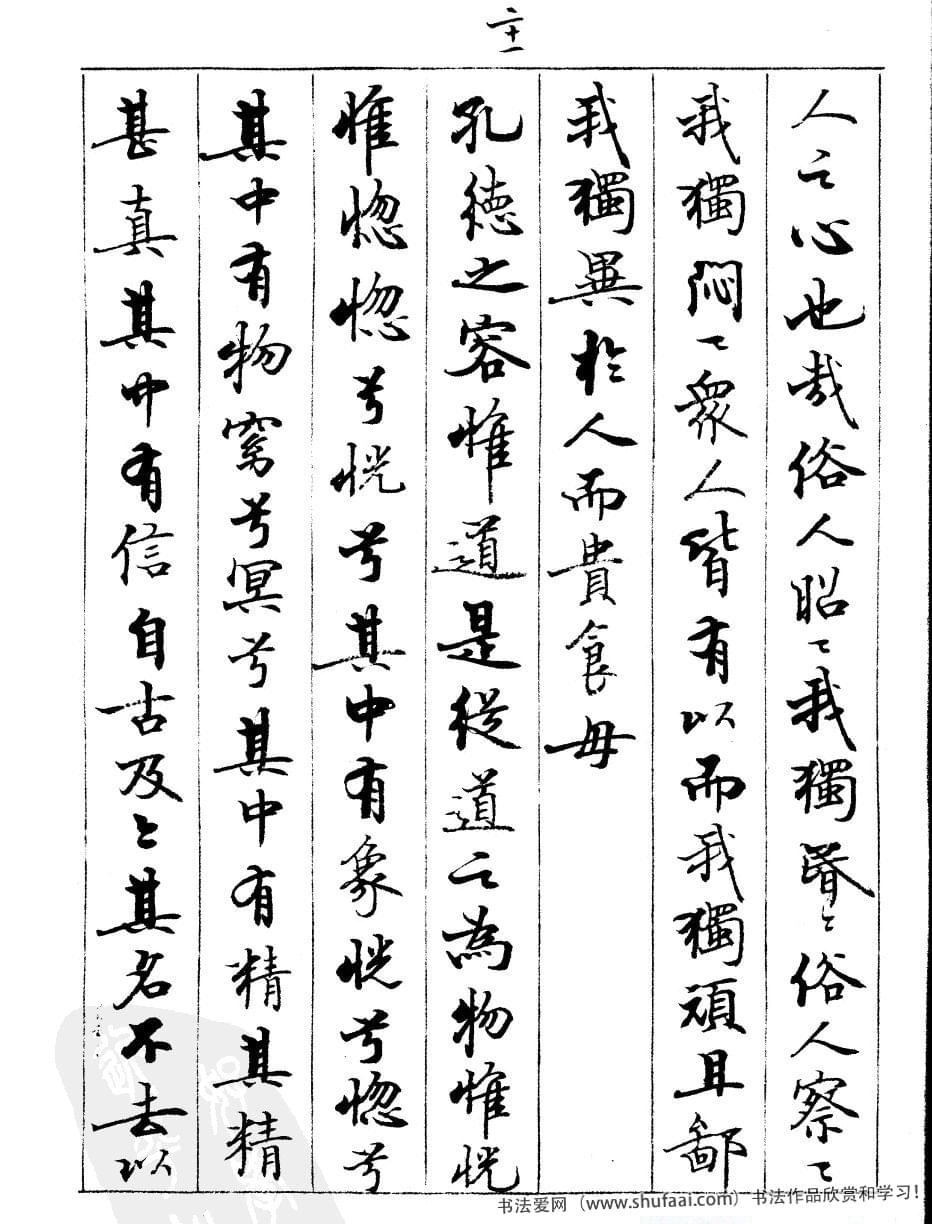 二十一
人之心也哉俗人昭々我獨昬々俗人察々
我獨悶々衆人皆有以而我獨頑且鄙
我獨異於人而貴食母
孔德之容惟道是從道之為物惟恍
惟惚惚兮恍兮其中有象恍兮惚兮
其中有物窈兮冥兮其中有精其精
甚真其中有信自古及今其名不去以
书法爱网（www.shufaai.com）书法作品欣赏和学习！